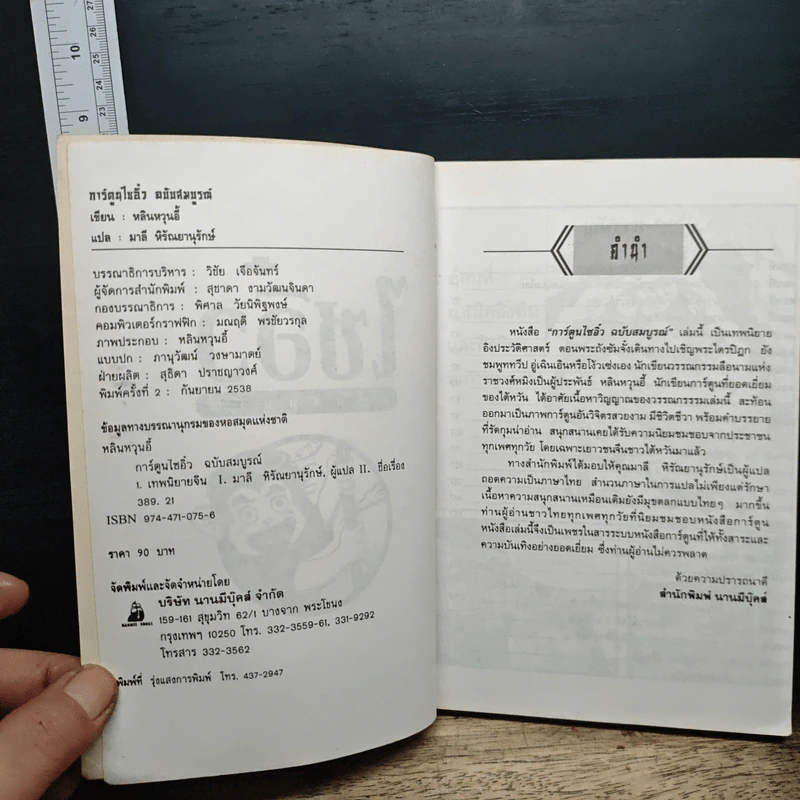 การ์ตูนไซอิ๋ว ฉบับสมบูรณ์
เขียน : หลินหวุนอี้
แปล : มาลี หิรัณยานุรักษ์
บรรณาธิการบริหาร : วิชัย เจือจันทร์
ผู้จัดการสำนักพิมพ์ : สุชาดา งามวัฒนจินดา
กองบรรณาธิการ : พิศาล วัยนิพิฐพงษ์
คอมพิวเตอร์กราฟฟิก : มณฤดี พรชัยวรกุล
ภาพประกอบ : หลินหวุนอี้
แบบปก : ภานุวัฒน์ วงษามาตย์
ฝ่ายผลิต : สุธิดา ปราชญาวงศ์
พิมพ์ครั้งที่ 2 : กันยายน 2538
ข้อมูลทางบรรณานุกรมของหอสมุดแห่งชาติ
หลินหวุนอี้
การ์ตูนไซอิ๋ว ฉบับสมบูรณ์
1. เทพนิยายจีน I. มาลี หิรัณยานุรักษ์, ผู้แปล II. ชื่อเรื่อง
389. 21
ISBN 974-471-075-6
ราคา 90 บาท
จัดพิมพ์และจัดจำหน่ายโดย
บริษัท นานมีบุ๊คส์ จำกัด
NANMEE BOOKS
159-161 สุขุมวิท 62/1 บางจาก พระโขนง
กรุงเทพฯ 10250 โทร. 332-3559-61, 331-9292
โทรสาร 332-3562
พิมพ์ที่ รุ่งแสงการพิมพ์ โทร. 437-2947
คำนำ
หนังสือ "การ์ตูนไซอิ๋ว ฉบับสมบูรณ์" เล่มนี้ เป็นเทพนิยาย
อิงประวัติศาสตร์ ตอนพระถังซัมจั๋งเดินทางไปเชิญพระไตรปิฎก ยัง
ชมพูทวีป อู๋เฉินเอินหรือโง้วเซ่งเอง นักเขียนวรรณกรรมลือนามแห่ง
ราชวงศ์หมิงเป็นผู้ประพันธ์ หลินหวุนอี้ นักเขียนการ์ตูนที่ยอดเยี่ยม
ของไต้หวัน ได้อาศัยเนื้อหาวิญญาณของวรรณกรรมเล่มนี้ สะท้อน
ออกมาเป็นภาพการ์ตูนอันวิจิตรสวยงาม มีชีวิตชีวา พร้อมคำบรรยาย
ที่รัดกุมน่าอ่าน สนุกสนานเคยได้รับความนิยมชมชอบจากประชาชน
ทุกเพศทุกวัย โดยเฉพาะเยาวชนจีนชาวไต้หวันมาแล้ว
ทางสำนักพิมพ์ได้มอบให้คุณมาลี หิรัณยานุรักษ์เป็นผู้แปล
ถอดความเป็นภาษาไทย สำนวนภาษาในการแปลไม่เพียงแต่รักษา
เนื้อหาความสนุกสนานเหมือนเดิมยังมีมุขตลกแบบไทยๆ มากขึ้น
ท่านผู้อ่านชาวไทยทุกเพศทุกวัยที่นิยมชมชอบหนังสือการ์ตูน
หนังสือเล่มนี้จึงเป็นเพชรในสารระบบหนังสือการ์ตูนที่ให้ทั้งสาระและ
ความบันเทิงอย่างยอดเยี่ยม ซึ่งท่านผู้อ่านไม่ควรพลาด
ด้วยความปรารถนาดี
สำนักพิมพ์ นานมีบุ๊คส์
10
9
27
26
25
24
23